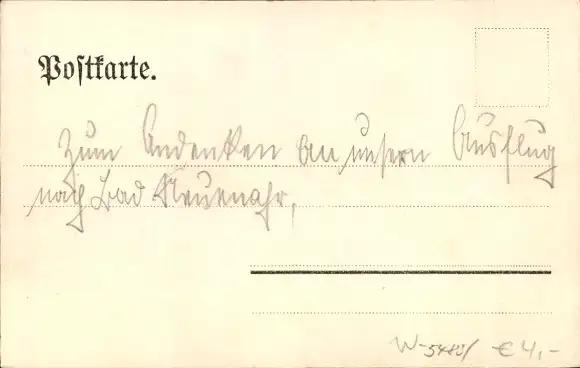 Postkarte.
Zum Andenken an unsern Ausflug
nach Bad Neuenahr,
W-5483/ € 4,-